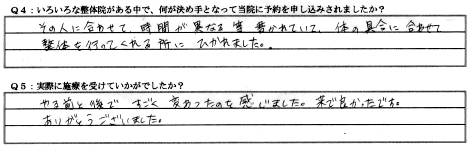 Q4：いろいろな整体院がある中で、何が決め手となって当院に予約を申し込みされましたか？
その人に合わせて、時間が異なる事書かれていて、体の具合に合わせて
整体を行ってくれる所にひかれました。
Q5：実際に施療を受けていかがでしたか？
やる前と後ですごく変わったのを感じました。来て良かったです。
ありがとうございました。